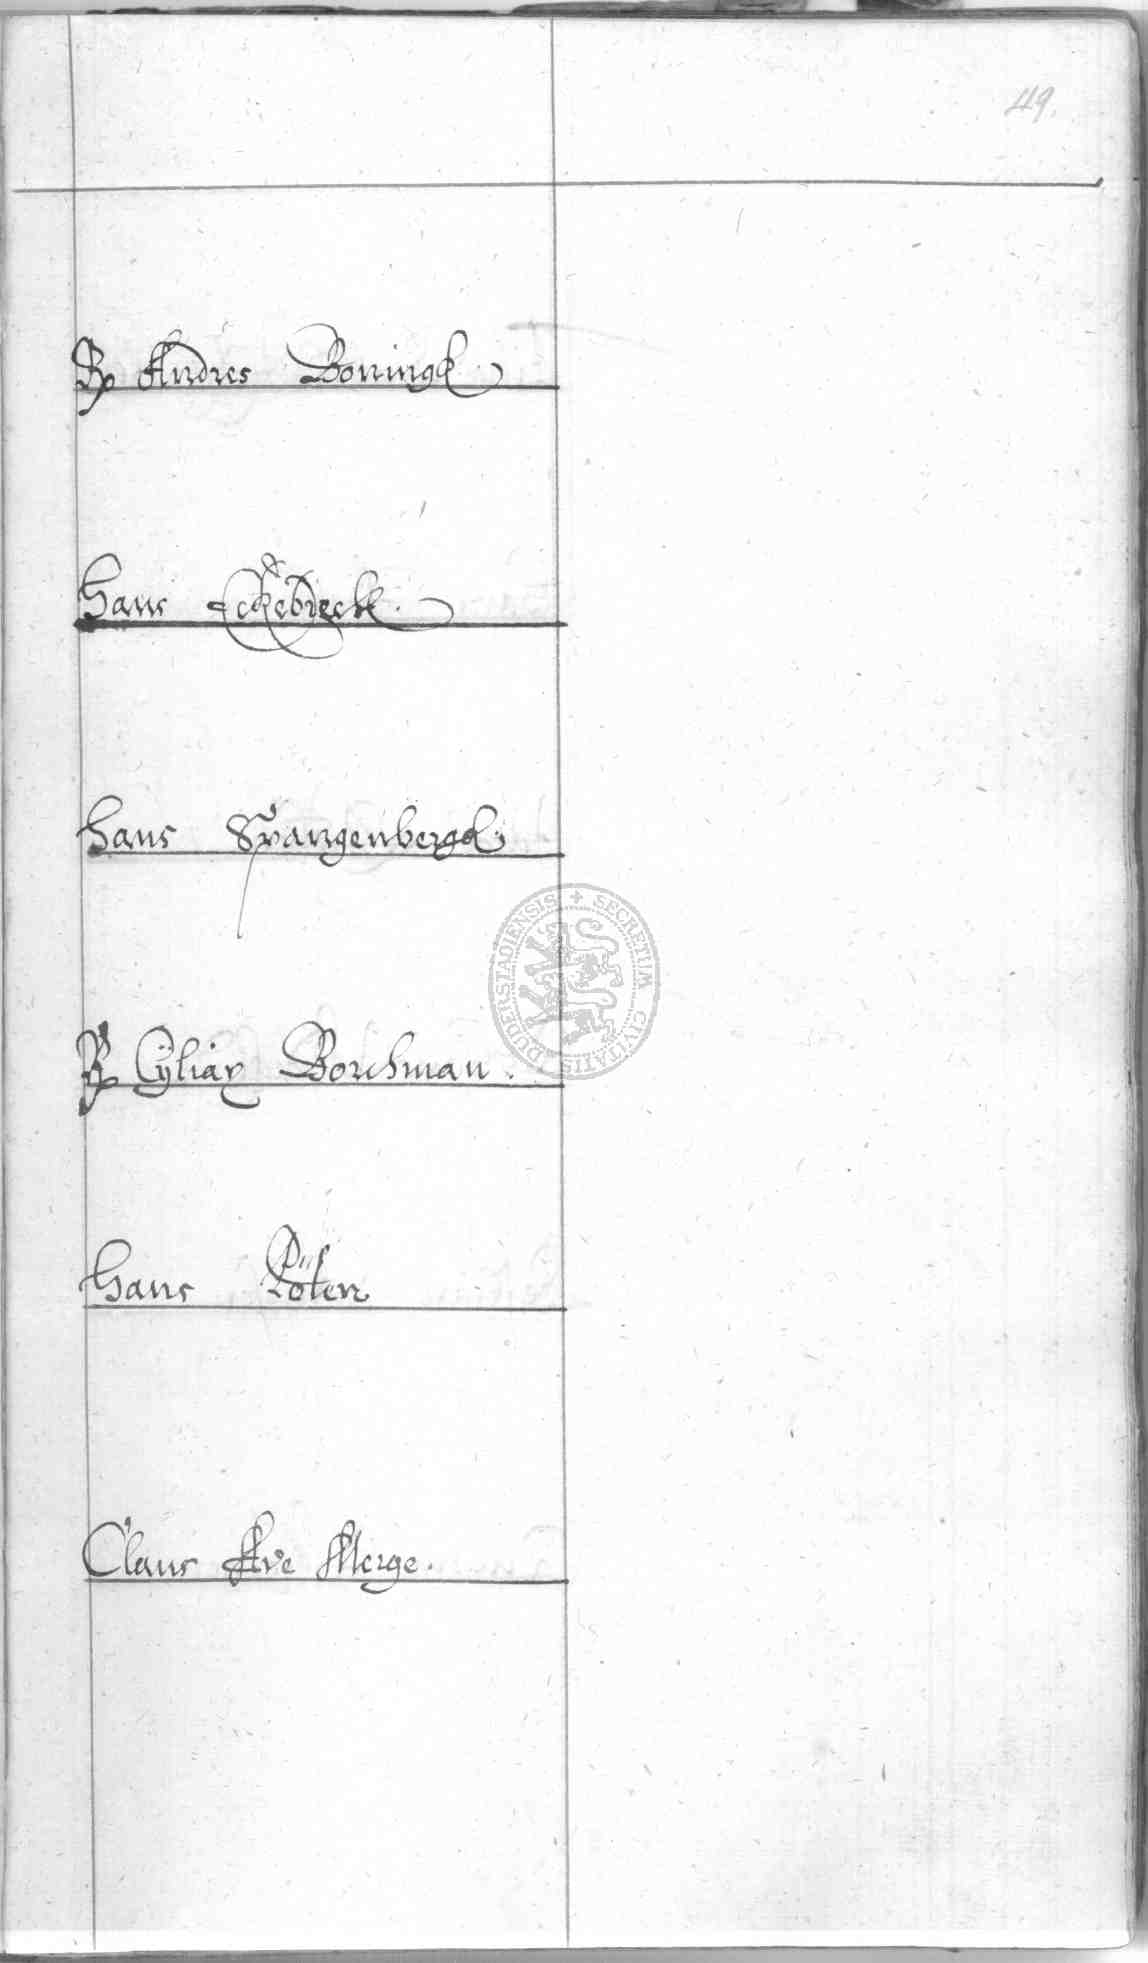 49.
Andres Boningk
Hans Eckebreck.
Hans Spangenbergk.
Cyliax Borchman.
Hans Polen
Claus Ave Merge.
SECRETUM CIVITATIS DUDERSTADIENSIS